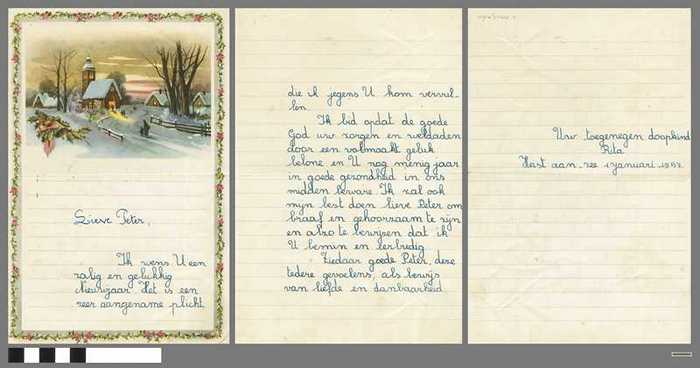 Lieve Peter,
Ik wens U een
zalig en gelukkig
Nieuwjaar. Het is een
zeer aangename plicht
die ik jegens U kom vervul-
len.
Ik bid opdat de goede
God uw zorgen en weldaden
door een volmaakt geluk
belone en U nog menig jaar
in goede gezondheid in ons
midden beware. Ik zal ook
mijn best doen lieve Peter om
braaf en gehoorzaam te zijn
en alzo te bewijzen dat ik
U bemin en eerbiedig.
Ziedaar goede Peter, deze
tedere gevoelens, als bewijs
van liefde en dankbaarheid
Uw toegenegen doopkind
Rita
Heist aan zee 1 januari 1967.